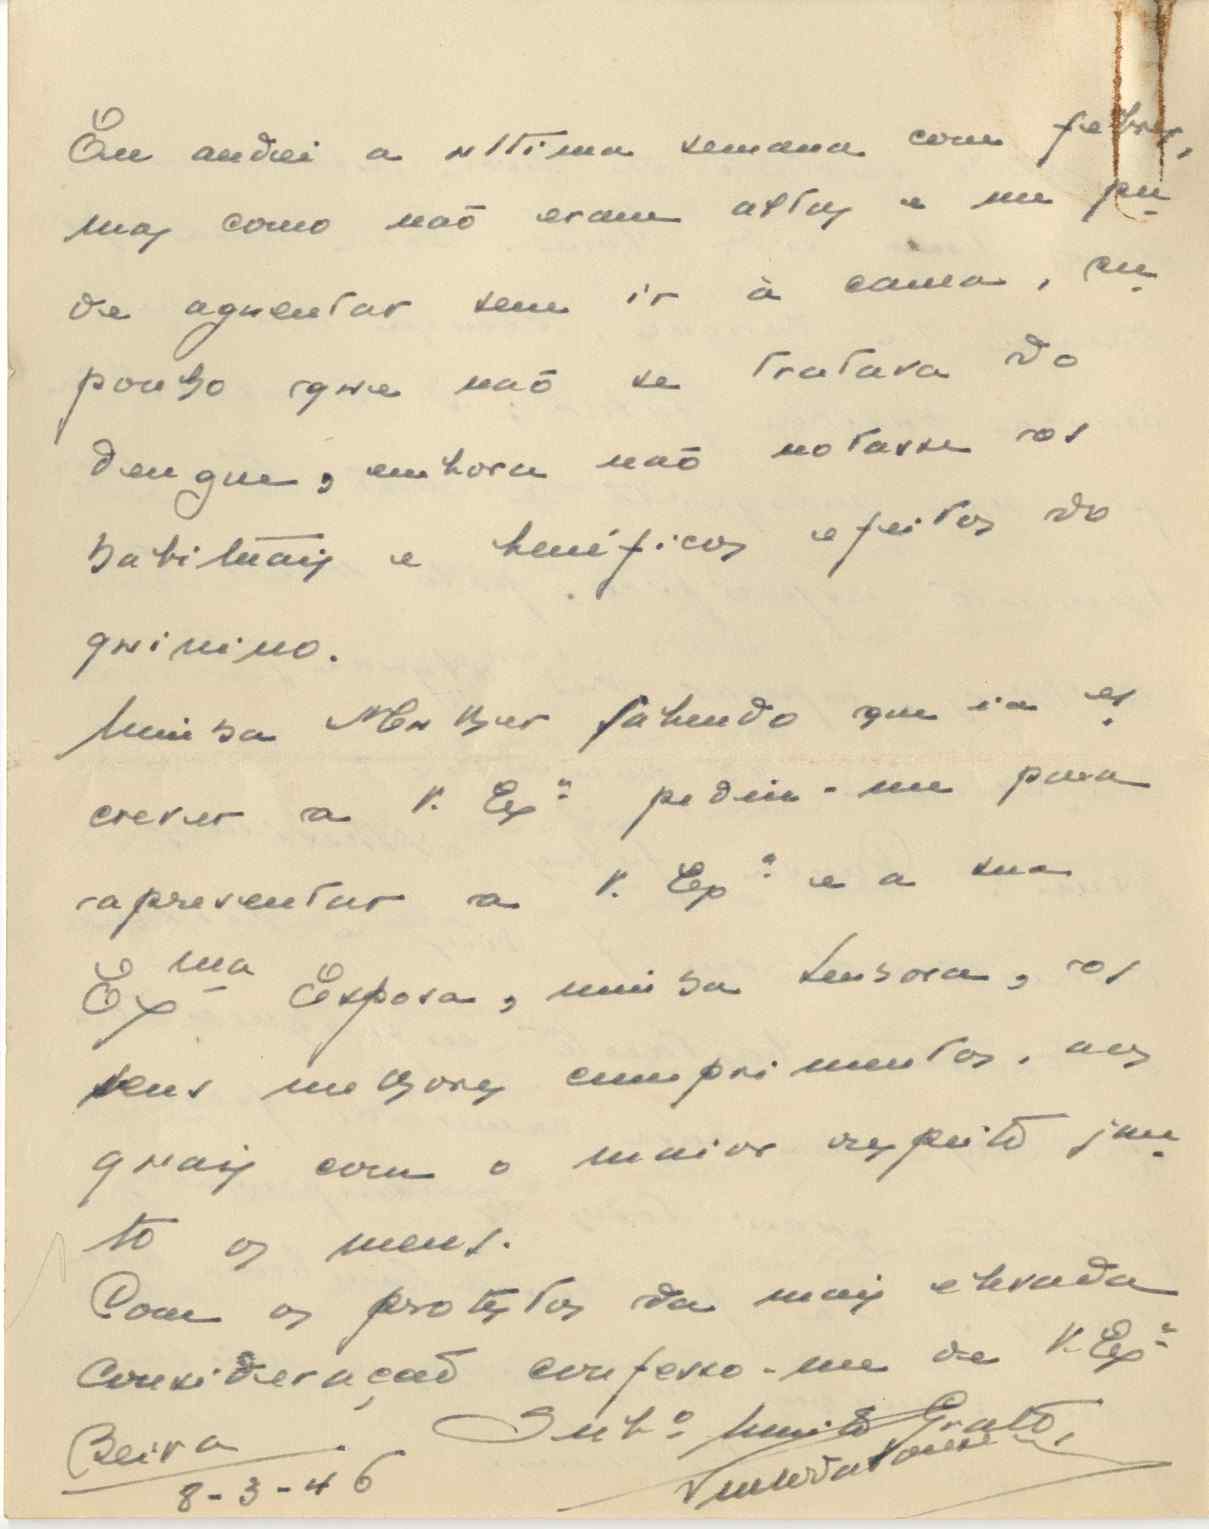 Eu andei a ultima semana com febres,
mas como não eram altas e me pu-
de aguentar sem ir à cama, su-
ponho que não se tratava do
dengue, embora não notasse os
habituais e benéficos efeitos do
quinino.
Minha Mulher sabendo que ia es-
crever a V. Exª pediu-me para
apresentar a V. Exª e a sua
Exma Esposa, minha Senhora, os
seus melhores cumprimentos, aos
quais com o maior respeito jun-
to os meus.
Com os protestos da mais elevada
consideração confesso-me de V. Exª
Subº Muito Grato,
Beira
8-3-46